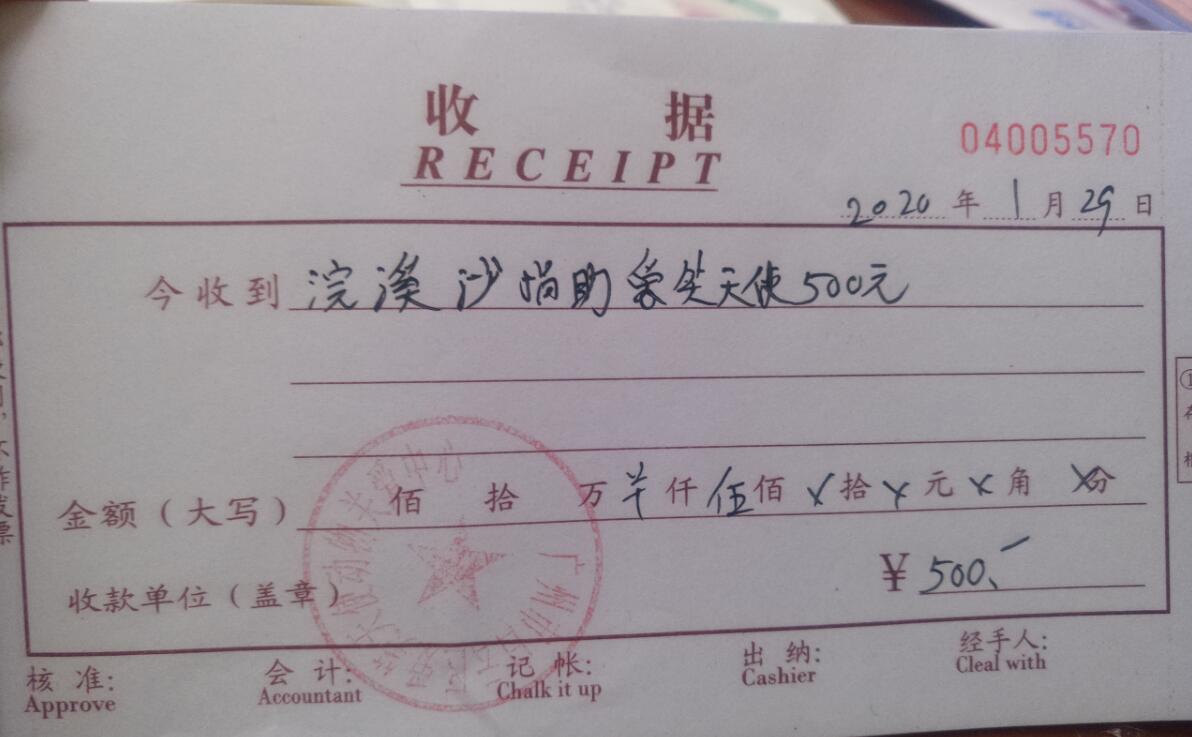 收 据
RECEIPT
04005570
2020 年 1 月 29 日
今收到 浣溪沙捐助爱笑天使500元
金额（大写） 佰 拾 万 羊 仟 伍 佰 x 拾 x 元 x 角 x 分
¥ 500、-
收款单位（盖章）
核 准： 会 计： 记 帐： 出 纳： 经手人：
Approve Accountant Chalk it up Cashier Cleal with
动物关爱中心
广州市